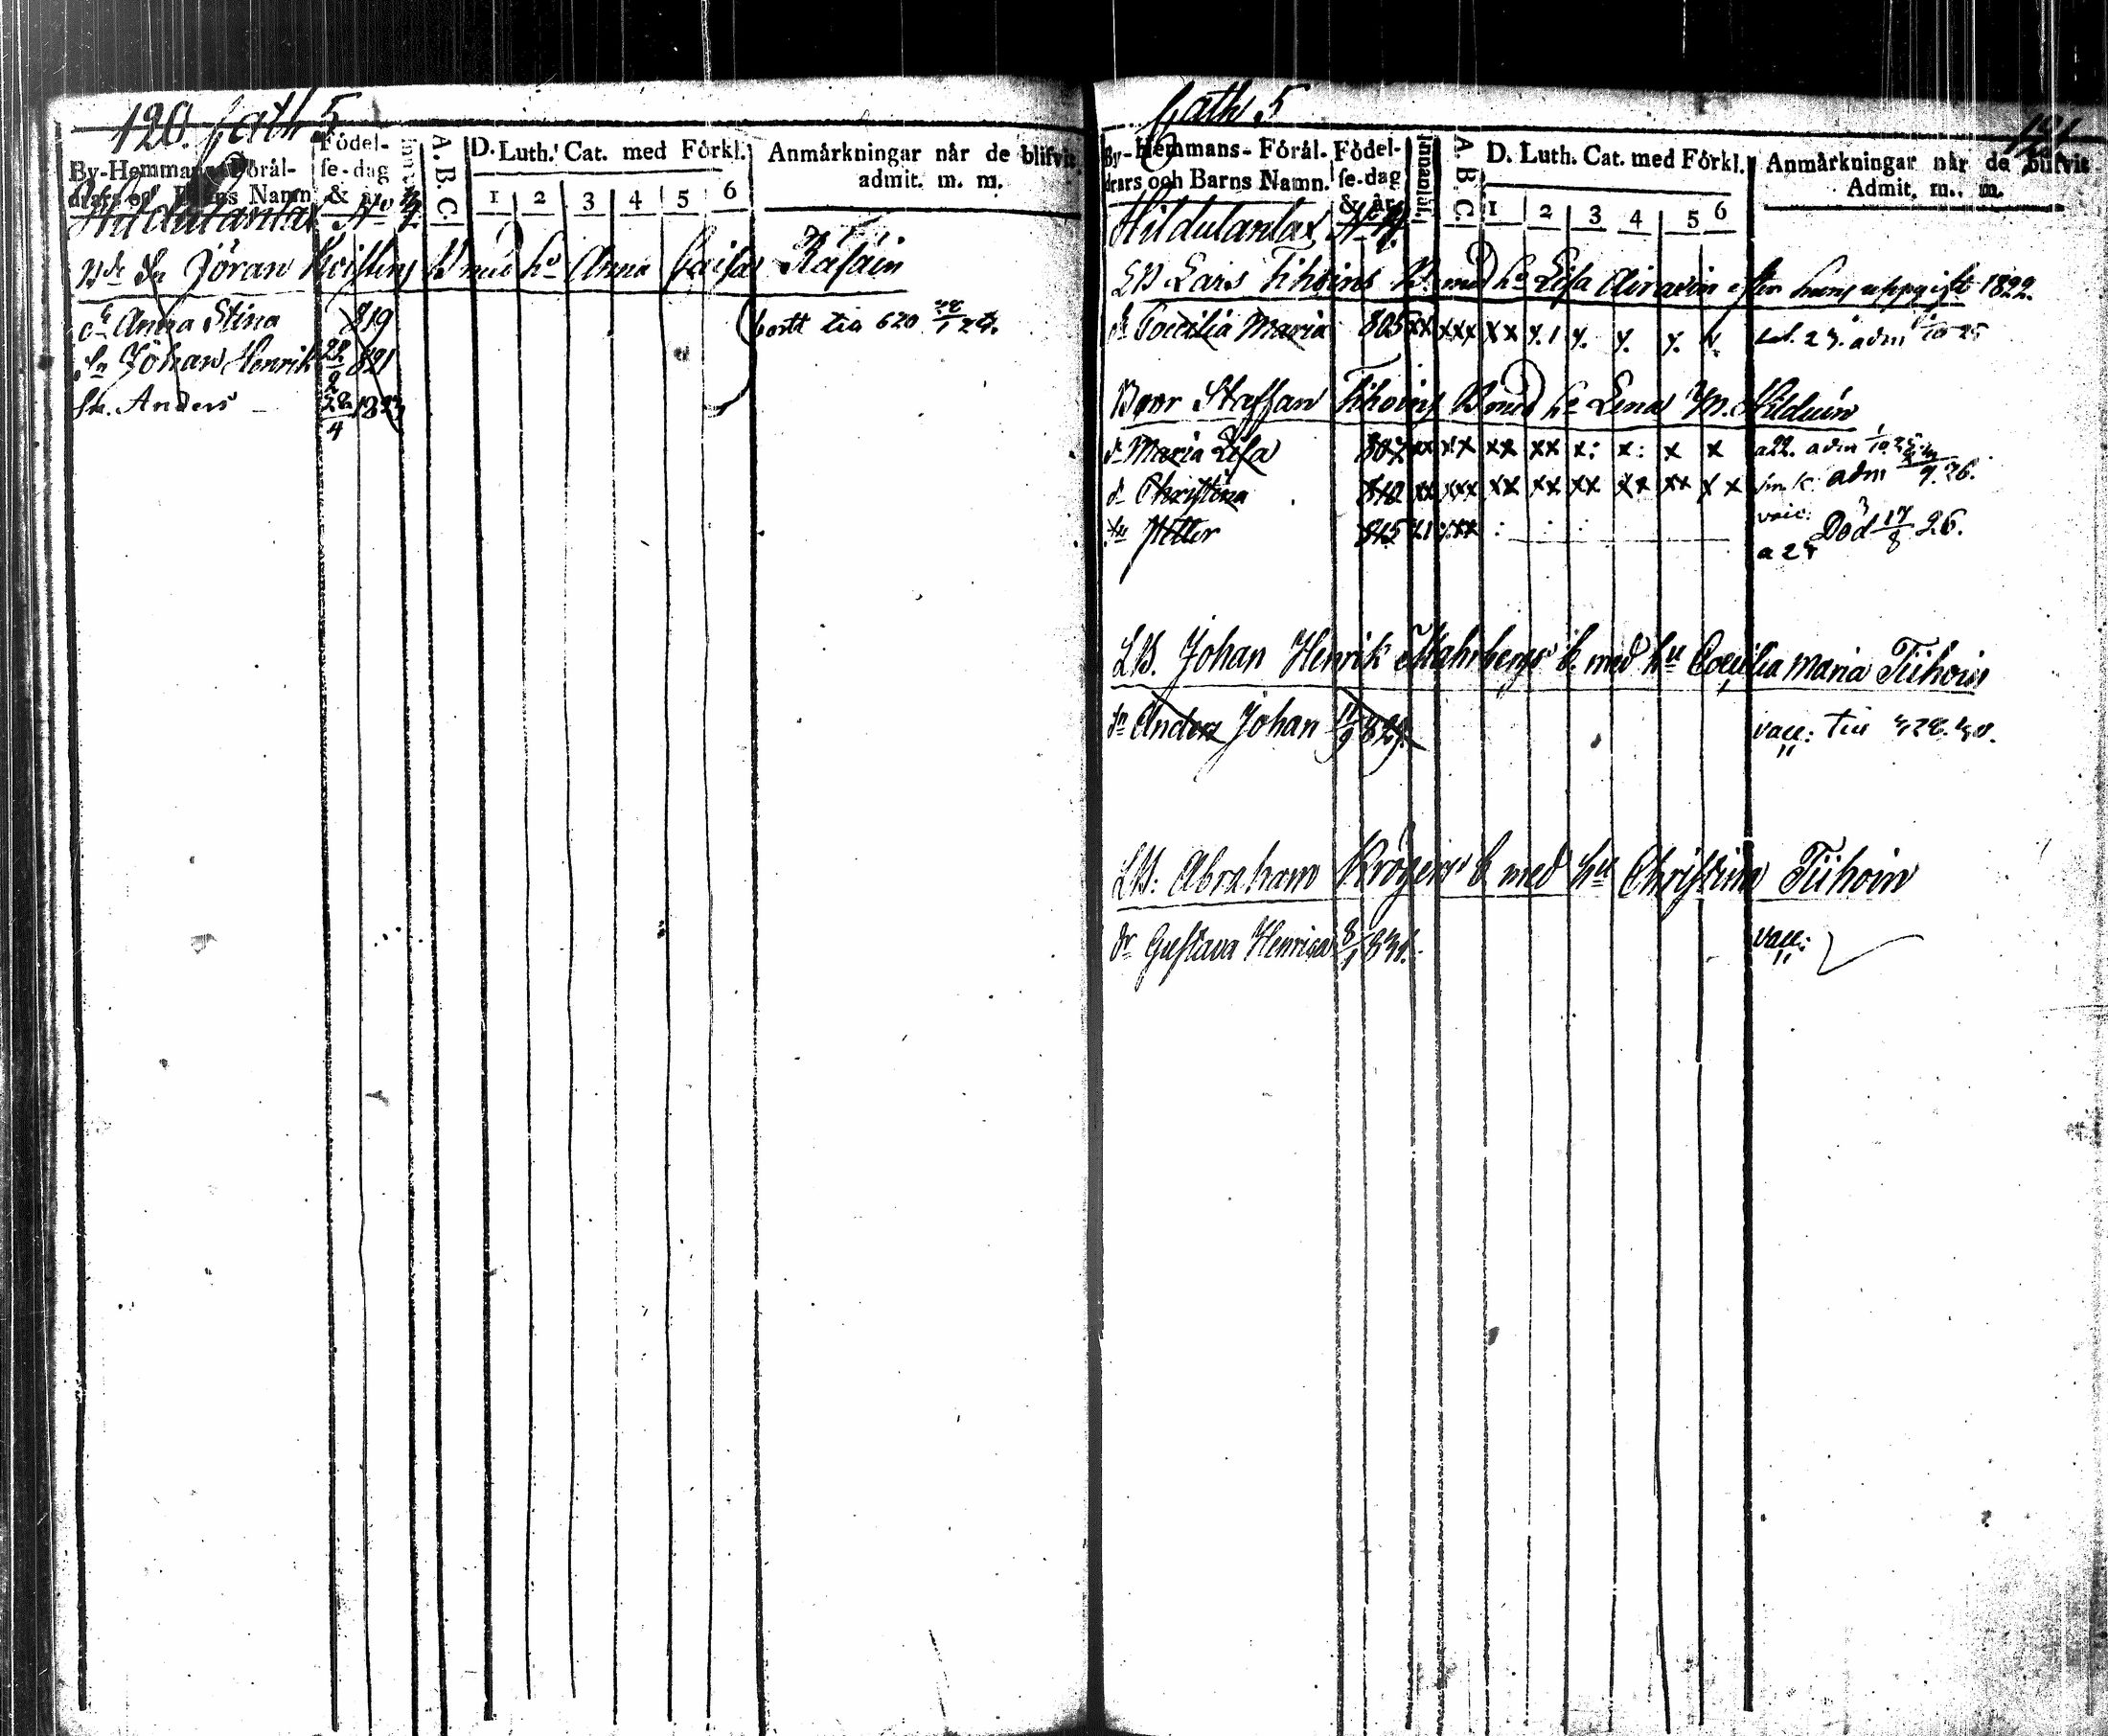 120. Cath 5
By-Hemmans Föräl-
drars och Barns Namn.
Födel-
se-dag
& år
A. B. C.
D. Luth. Cat. med Förkl.
1 2 3 4 5 6
Anmärkningar når de blifvit
admit. m. m.
Hildulanlax No
Jöran Koistins B med h Anna Caisa Räsäin
dr Anna Stina 819 bortt till 620
sn Johan Henrik 821
sn. Anders 28/4 1823
Cath. 5
121
By-Hemmans-Föräl-
drars och Barns Namn.
Födel-
se-dag
& år
Innanläs.
A. B. C.
D. Luth. Cat. med Förkl.
1 2 3 4 5 6
Anmärkningar når de blifvit
Admit. m. m.
Hildulanlax No
LB Lars Tihoins B med h Lisa Airaxin efter hans uppgift 1822.
dr Coecilia Maria 805 xx xxx xx
Staffan Tihoins B med h Lena M. Hilduin
dr Maria Lisa 807 xx xx xx xx x: x: x x a22. adm
dr Christina 810 xx xxx xx xx xx xx xx xx adm 9. 26.
sn Petter 815 Död 17/8 26.
LB. Johan Henrik Mahrbergs b. med hu Coecilia Maria Tiihoin
sn Anders Johan 11/9 829. vacc: till 428.
LB. Abraham Krögers b. med hu Christina Tiihoin
dr Gustava Henrica 8/1 831. vacc: